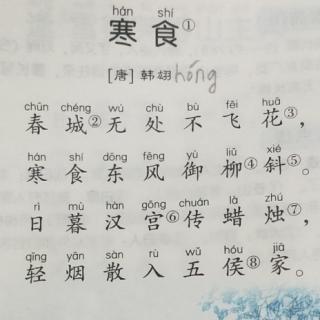 hán shí
寒食①
[唐] 韩翃 hóng
chūn chéng wú chù bù fēi huā
春城②无处不飞花③，
hán shí dōng fēng yù liǔ xié
寒食东风御柳④斜⑤。
rì mù hàn gōng chuán là zhú
日暮汉宫⑥传蜡烛⑦，
qīng yān sàn rù wǔ hóu jiā
轻烟散入五侯⑧家。